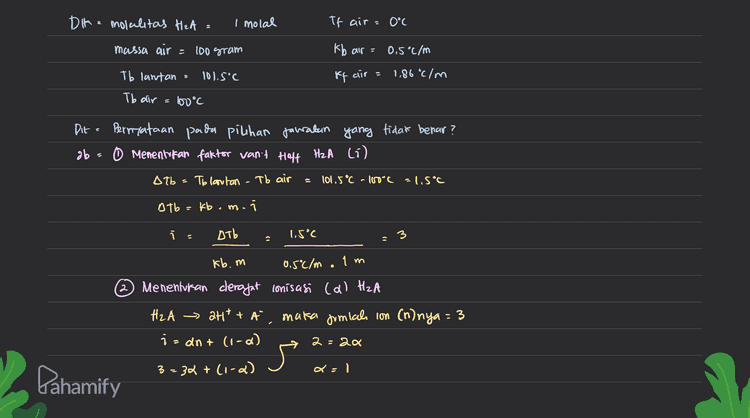 Dik = molalitas H₂A = 1 molal Tf air = 0°C
massa air = 100 gram Kb air = 0.5°C/m
Tb larutan = 101.5°C Kf air = 1.86°C/m
Tb air = 100°C
Dit = Pernyataan pada pilihan jawaban yang tidak benar?
Jb = ① Menentukan faktor van't Hoff H₂A (i)
ΔTb = Tb larutan - Tb air = 101.5°C - 100°C = 1.5°C
ΔTb = Kb . m . i
i = ΔTb / Kb. m = 1.5°C / 0.5°C/m . 1 m = 3
② Menentukan derajat ionisasi (α) H₂A
H₂A → 2H⁺ + A⁻, maka jumlah ion (n)nya = 3
i = αn + (1-α) → 2 = 2α
3 = 3α + (1-α) α = 1
Pahamify